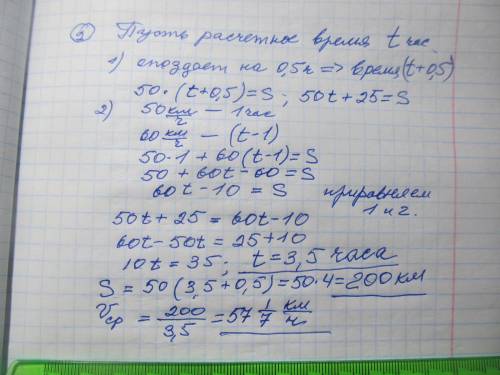 ② Пусть расчетное время t час.
1) опоздает на 0,5ч => время (t+0,5)
50·(t+0,5)=S; 50t+25=S
2) 50 км/ч — 1 час
60 км/ч — (t-1)
50·1+60(t-1)=S
50+60t-60=S
60t-10=S приравняем 1 и 2.
50t+25=60t-10
60t-50t=25+10
10t=35; t=3,5 часа
S=50(3,5+0,5)=50·4=200 км
Vср = 200/3,5 = 57 1/7 км/ч